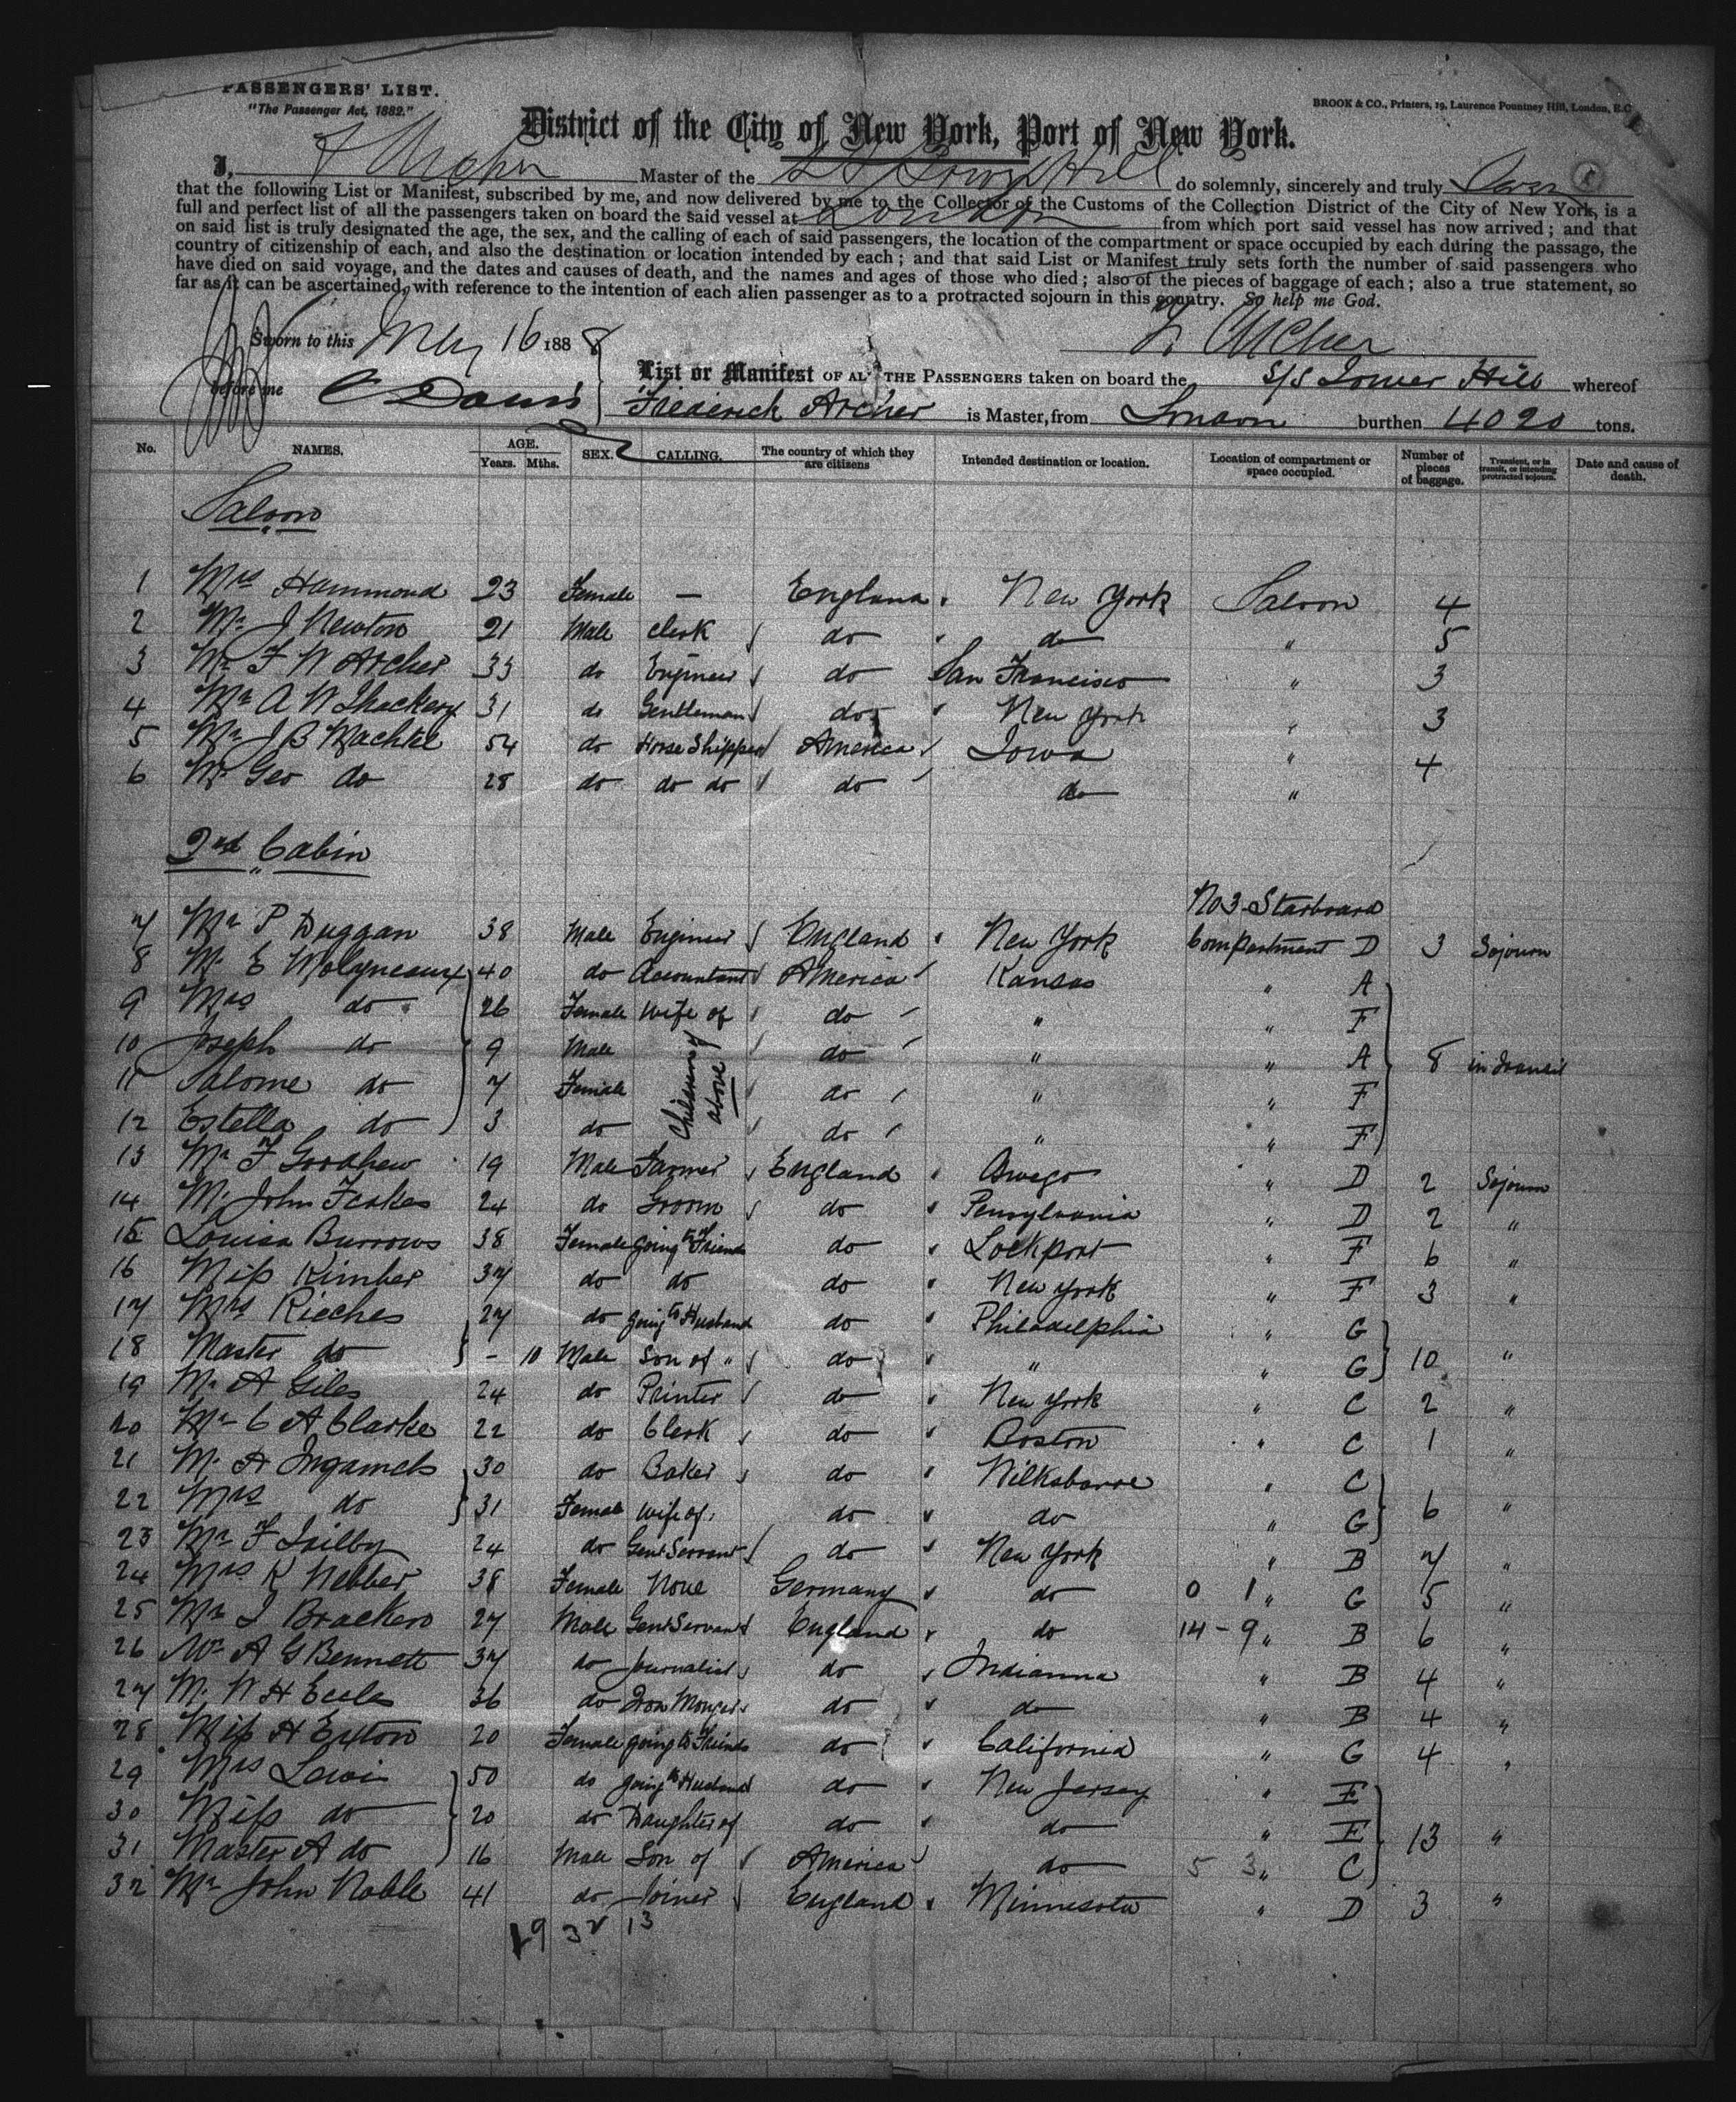 PASSENGERS' LIST.
"The Passenger Act, 1882."
BROOK & CO., Printers, 19, Laurence Pountney Hill, London, E.C.
District of the City of New York, Port of New York.
I, F Archer Master of the SS Tower Hill do solemnly, sincerely and truly Swear
that the following List or Manifest, subscribed by me, and now delivered by me to the Collector of the Customs of the Collection District of the City of New York, is a
full and perfect list of all the passengers taken on board the said vessel at London from which port said vessel has now arrived; and that
on said list is truly designated the age, the sex, and the calling of each of said passengers, the location of the compartment or space occupied by each during the passage, the
country of citizenship of each, and also the destination or location intended by each; and that said List or Manifest truly sets forth the number of said passengers who
have died on said voyage, and the dates and causes of death, and the names and ages of those who died; also of the pieces of baggage of each; also a true statement, so
far as it can be ascertained, with reference to the intention of each alien passenger as to a protracted sojourn in this country. So help me God.
Sworn to this May 16 1888
F Archer
before me C Davis
List or Manifest OF ALL THE PASSENGERS taken on board the S/S Tower Hill whereof
Frederick Archer is Master, from London burthen 4020 tons.
No. NAMES. AGE. Years. Mths. SEX. CALLING. The country of which they are citizens Intended destination or location. Location of compartment or space occupied. Number of pieces of baggage. Transient, or in transit, or intending protracted sojourn. Date and cause of death.
Saloon
1 Mrs Hammond 23 Female — England New York Saloon 4
2 Mr J Newton 21 Male Clerk do do " 5
3 Mr F W Archer 33 do Engineer do San Francisco " 3
4 Mr A W Thackery 31 do Gentleman do New York " 3
5 Mr J B Wachtel 54 do Horse Shipper America Iowa " 4
6 Mr Geo do 28 do do do do do "
2nd Cabin
No 3 Starboard
7 Mr P Duggan 38 Male Engineer England New York Compartment D 3 Sojourn
8 Mr E Molyneaux 40 do Accountant America Kansas " A
9 Mrs do 26 Female Wife of do " " F
10 Joseph do 9 Male Children of above do " " A 8 in Transit
11 Salome do 7 Female do " " F
12 Estella do 3 do do " " F
13 Mr F Goodhew 19 Male Farmer England Oswego " D 2 Sojourn
14 Mr John Feakes 24 do Groom do Pensylvania " D 2 "
15 Louisa Burrows 38 Female going to Friends do Lockport " F 6 "
16 Miss Kimber 37 do do do New York " F 3 "
17 Mrs Rieches 27 do going to Husband do Philadelphia " G
18 Master do - 10 Male Son of " do " " G 10 "
19 Mr A Giles 24 do Printer do New York " C 2 "
20 Mr C A Clarke 22 do Clerk do Boston " C 1 "
21 Mr A Ingamels 30 do Baker do Wilksbarre " C
22 Mrs do 31 Female Wife of do do " G 6 "
23 Mr F Tilby 24 do Gent Servant do New York " B 7 "
24 Mrs K Webber 38 Female None Germany do 0 1 " G 5 "
25 Mr J Brackero 27 Male Gent Servant England do 14 - 9 " B 6 "
26 Mr A G Bennett 37 do Journalist do Indianna " B 4 "
27 Mr W H Eccles 36 do Iron Monger do do " B 4 "
28 Miss H Exton 20 Female going to Friends do California " G 4 "
29 Mrs Lewis 50 do going to Husband do New Jersey " E
30 Miss do 20 do Daughter of do do " E 13 "
31 Master A do 16 Male Son of America do 5 3 " C
32 Mr John Noble 41 do Joiner England Minnesota " D 3 "
19 32 13